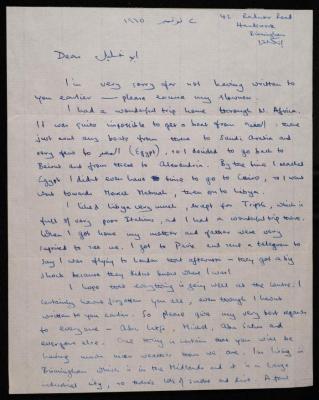 ٢ نوفمبر ١٩٦٥
42 Radnor Road
Handsworth
Birmingham
Dear ابو خليل
I'm very sorry for not having written
to you earlier — please excuse my slowness.
I had a wonderful trip home through N. Africa.
It was quite impossible to get a boat from : there
just aren't any boats from there to Saudi Arabia and
very few to (Egypt), so I decided to go back to
Beirut and from there to Alexandria. By the time I reached
Egypt I didn't even have time to go to Cairo, so I
went towards Mersa Matruh, then on to Libya.
I liked Libya very much, except for Tripoli, which is
full of very poor Italians, and I had a wonderful trip there.
When I got home my mother and father were very
surprised to see me. I got to Paris and sent a telegram to
say I was flying to London that afternoon — they got a big
shock because they didn't know where I was!
I hope that everything is going well at the Centre. I
certainly haven't forgotten you all, even though I haven't
written to you earlier. So please give my very best regards
to everyone — Abu , , Abu Salim and
everyone else. One thing is certain that you will be
having much nicer weather than we are. I'm living in
Birmingham which is in the Midlands and it is a large
industrial city, so there's lots of smoke and dirt. A few